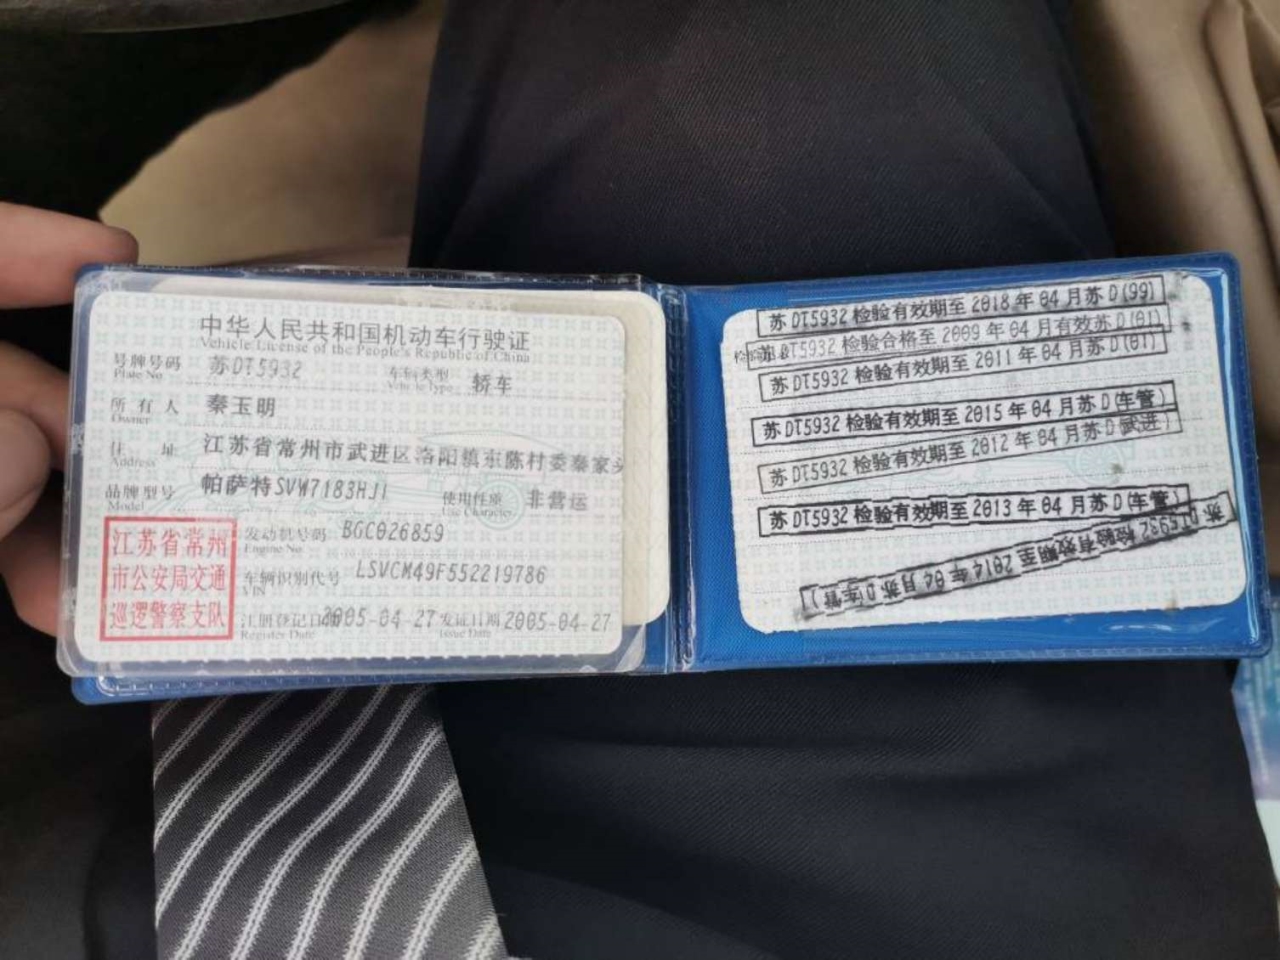 中华人民共和国机动车行驶证
Vehicle License of the People's Republic of China
号牌号码 苏DT5932 车辆类型 轿车
Plate No Vehicle Type
所有人 秦玉明
Owner
住址 江苏省常州市武进区洛阳镇东陈村委秦家头
Address
品牌型号 帕萨特SVW7183HJI 使用性质 非营运
Model Use Character
江苏省常州
市公安局交通
巡逻警察支队
发动机号码 BGC026859
Engine No
车辆识别代号 LSVCM49F552219786
VIN
注册登记日期 2005-04-27 发证日期 2005-04-27
Register Date Issue Date
苏DT5932检验有效期至2018年04月苏D(99)
苏DT5932检验合格至2009年04月有效苏D(01)
苏DT5932检验有效期至2011年04月苏D(01)
苏DT5932检验有效期至2015年04月苏D(车管)
苏DT5932检验有效期至2012年04月苏D(武进)
苏DT5932检验有效期至2013年04月苏D(车管)
苏DT5932检验有效期至2014年04月苏D(车管)